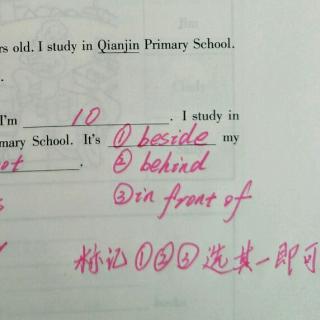 rs old. I study in Qianjin Primary School.
.
I'm 10 . I study in
mary School. It's ① beside my
ot . ② behind
③ in front of
标记①②③选其一即可